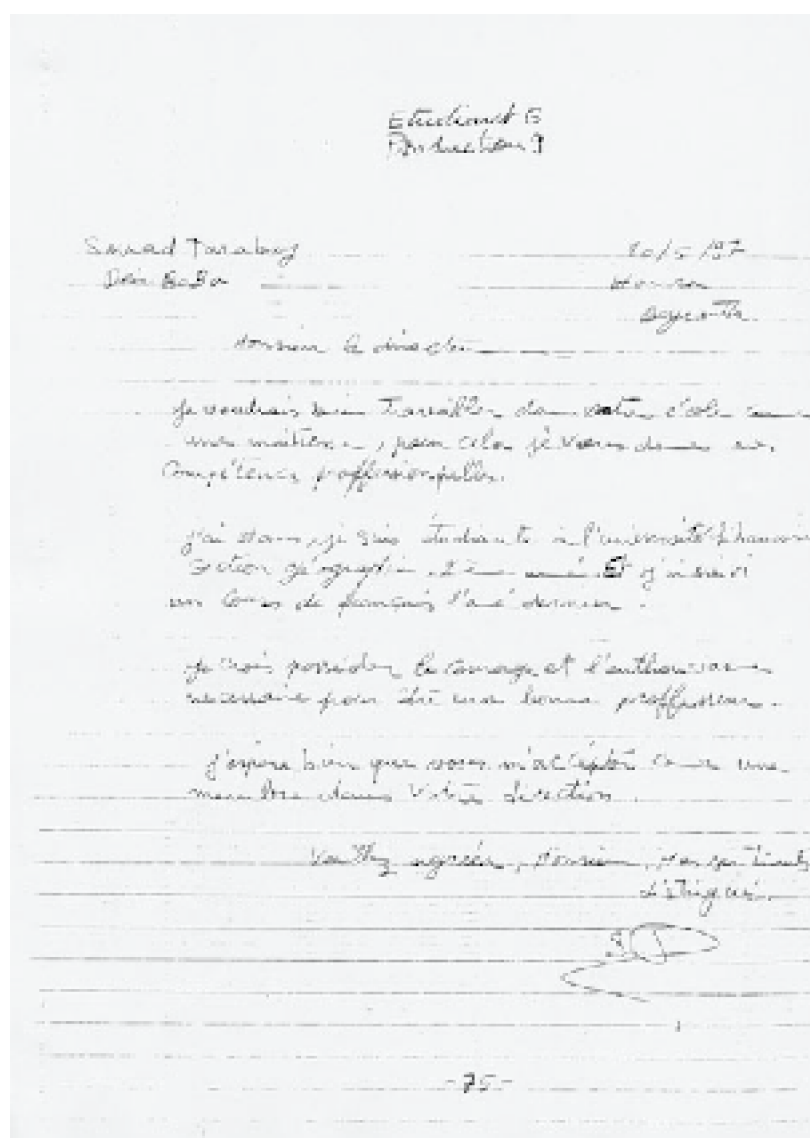 Etudiant 5
Production 1
Souad Tarabay 20/5/97
Deir Ba
Monsieur le directeur
je voudrais bien Travailler dans votre école comme
une maîtresse, pour cela je vous donne mes
Compétences proffessionnelles.
j'ai ans, je suis étudiante à l'université libanaise
Section géographie 2ème année. Et j'ai suivi
un Cours de français l'ané dernier.
je crois posséder le courage et l'enthousiasme
nécessaire pour être une bonne proffesseur.
j'espère bien que vous m'acceptér comme une
membre dans Votre direction.
agréer, Monsieur, Mes sentiments
distingués.
-75-